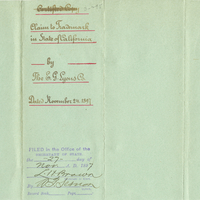 Certified Copy
Claim to Trademark
in State of California
by
The E. G. Lyons Co.
Dated November 24. 1897
FILED in the Office of the
SECRETARY OF STATE
the 27 day of
Nov A. D. 1897
L. H. Brown
By
Deputy